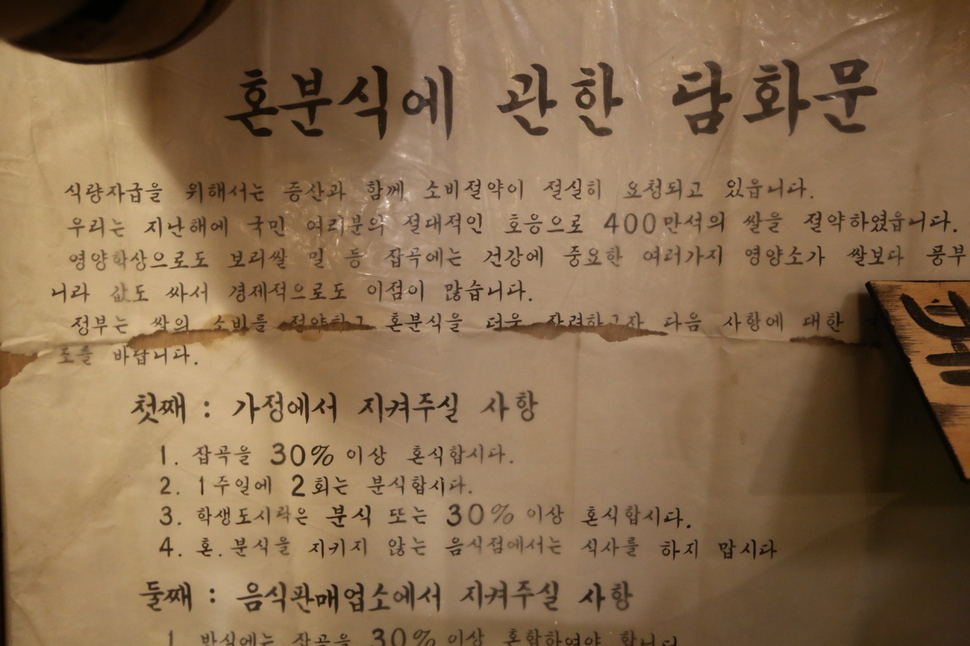 혼분식에 관한 담화문
식량자급을 위해서는 증산과 함께 소비절약이 절실히 요청되고 있읍니다.
우리는 지난해에 국민 여러분의 절대적인 호응으로 400만석의 쌀을 절약하였읍니다.
영양학상으로도 보리쌀 밀 등 잡곡에는 건강에 중요한 여러가지 영양소가 쌀보다 풍부
니라 값도 싸서 경제적으로도 이점이 많습니다.
정부는 쌀의 소비를 절약하고 혼분식을 더욱 장려하고자 다음 사항에 대한
도를 바랍니다.
첫째 : 가정에서 지켜주실 사항
1. 잡곡을 30% 이상 혼식합시다.
2. 1주일에 2회는 분식합시다.
3. 학생도시락은 분식 또는 30% 이상 혼식합시다.
4. 혼.분식을 지키지 않는 음식점에서는 식사를 하지 맙시다
둘째 : 음식판매업소에서 지켜주실 사항
1. 밥식에는 잡곡을 30% 이상 혼합하여야 합니다